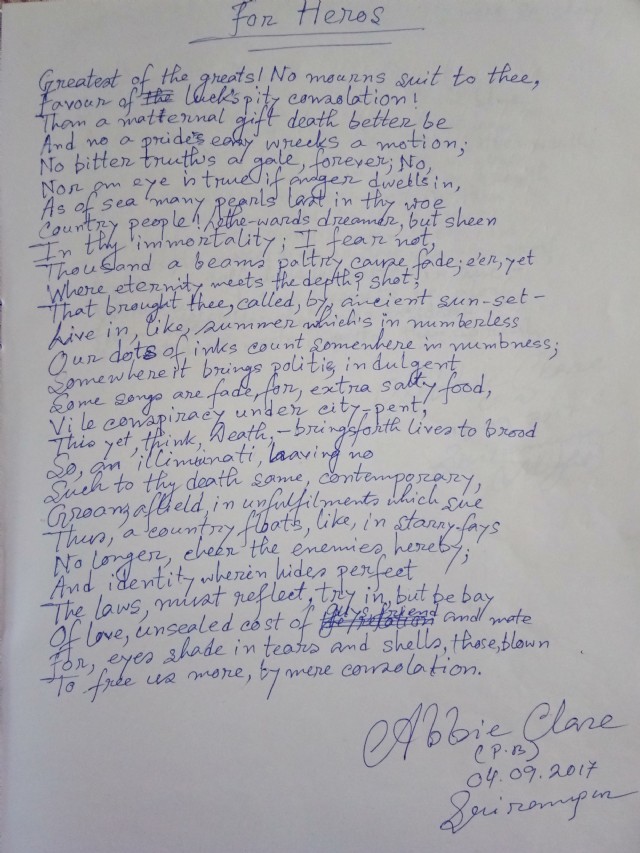 For Heros
Greatest of the greats! No mourns suit to thee,
Favour of the luck's pity consolation!
Than a matternal gift death better be
And no a pride's easy wrecks a motion;
No bitter truth's a gale, forever; No,
Nor an eye is true if anger dwells in,
As of sea many pearls last in thy woe
Country people! dreamer, but sheen
In thy immortality; I fear not,
Thousand a beams paltry cause fade; e'er, yet
Where eternity meets the depth? shot;
That brought thee, called, by, ancient sun-set-
Live in, like, summer which's in numberless
Our dots of inks count somewhere in numbness;
Somewhere it brings politis, indulgent
Some songs are fade, for, extra salty food,
Vile conspiracy under city-pent,
This yet, think, Death,-brings forth lives to brood
So, an illiminati, leaving no
Such to thy death same, contemporary,
Groans, afield, in unfulfilments which sue
Thus, a country floats, like, in starry-fays
No longer, cheer the enemies, hereby;
And identity wherein hides perfect
The laws, must reflect, try in, but be bay
Of love, unsealed cost of friend and mate
For, eyes shade in tears and shells, those, blown
To free us more, by mere consolation.
Abbie Clare
(P.B)
04.09.2017